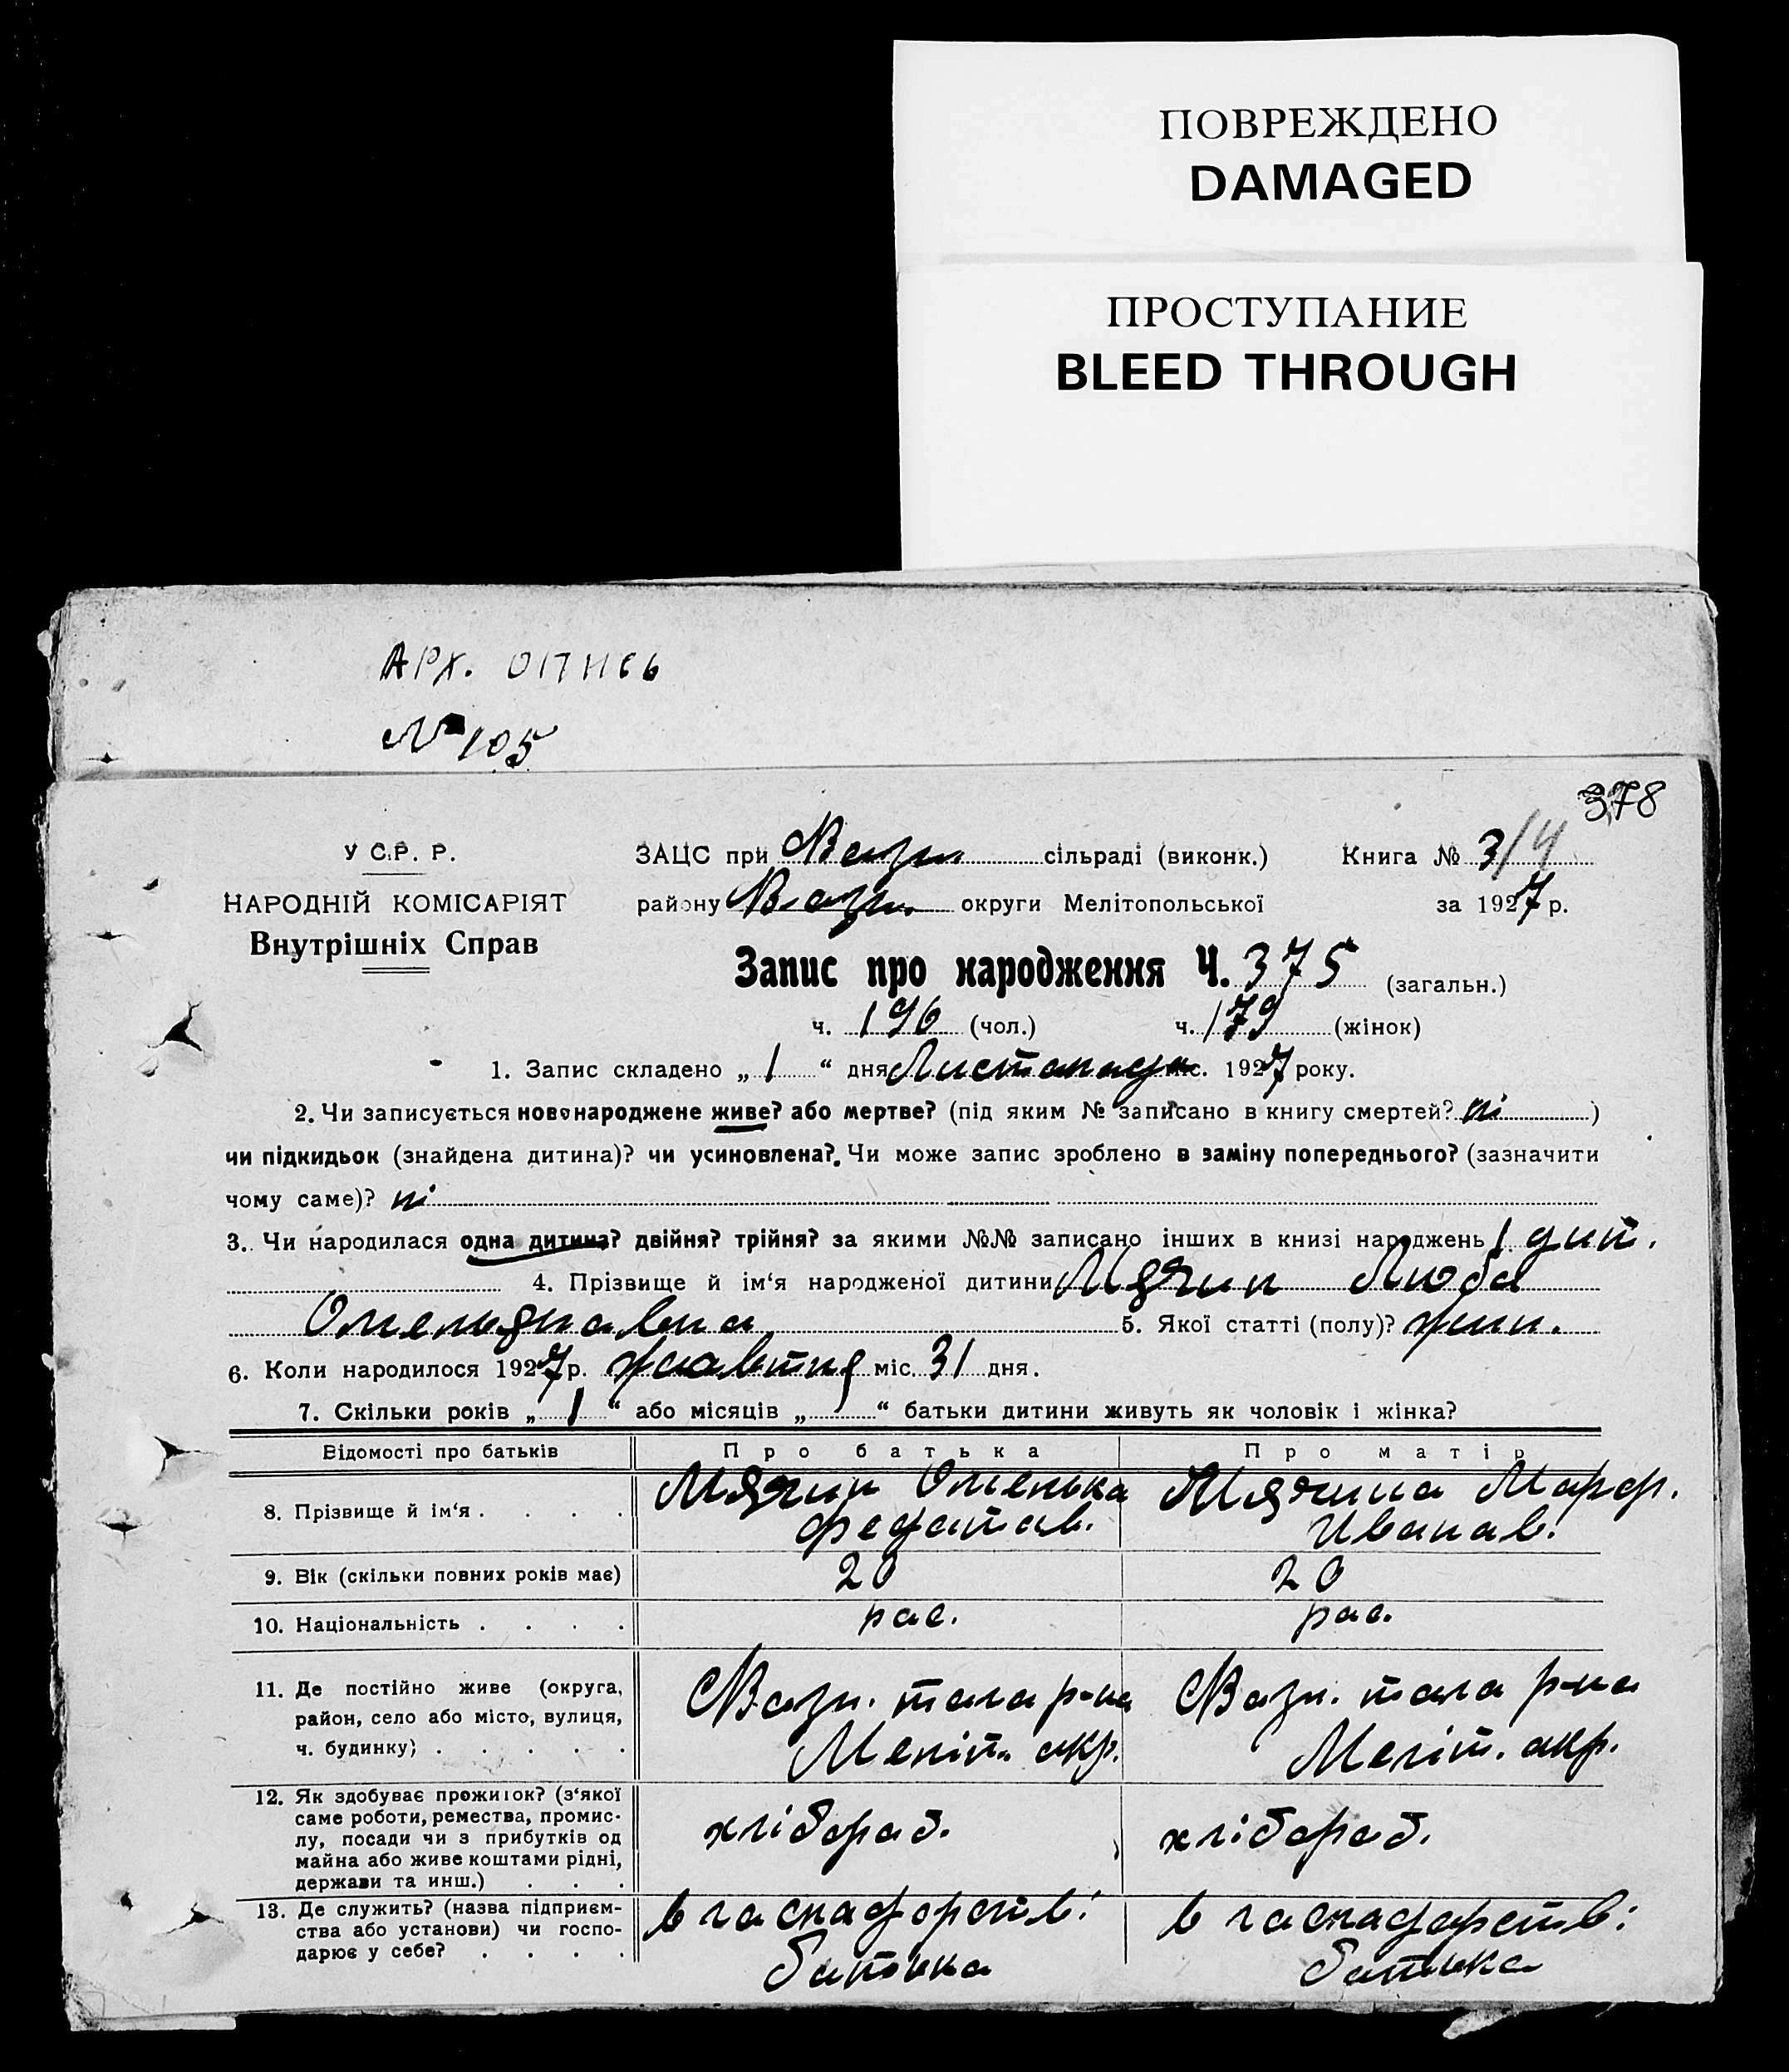 ПОВРЕЖДЕНО
DAMAGED
ПРОСТУПАНИЕ
BLEED THROUGH
АРХ.
№ 105
378
У С.Р. Р.
НАРОДНІЙ КОМІСАРІЯТ
Внутрішніх Справ
ЗАЦС при В. сільраді (виконк.) Книга № 3/4
району округи Мелітопольської за 1927 р.
Запис про народження Ч. 375 (загальн.)
ч. 196 (чол.) ч. 179 (жінок)
1. Запис складено „ 1 “ дня Листопада міс. 1927 року.
2. Чи записується новонароджене живе? або мертве? (під яким № записано в книгу смертей? ні )
чи підкидьок (знайдена дитина)? чи усиновлена? Чи може запис зроблено в заміну попереднього? (зазначити
чому саме)? ні
3. Чи народилася одна дитина? двійня? трійня? за якими №№ записано інших в книзі народжень 1 дит.
4. Прізвище й ім‘я народженої дитини Мячин Люба
Омельянавна 5. Якої статті (полу)? жин.
6. Коли народилося 1927 р. жавтня міс. 31 дня.
7. Скільки років „ 1 “ або місяців „ “ батьки дитини живуть як чоловік і жінка?
Відомості про батьків Про батька Про матір
8. Прізвище й ім‘я . . . . Мячин Омелька Мячина Марф.
Федатав. Иванав.
9. Вік (скільки повних років має) 20 20
10. Національність . . . . рас. рас.
11. Де постійно живе (округа,
район, село або місто, вулиця,
ч. будинку) . . . . .
Меліт. акр. Меліт. акр.
12. Як здобуває прожиток? (з‘якої
саме роботи, ремества, промис-
лу, посади чи з прибутків од
майна або живе коштами рідні,
держави та инш.) . . .
хлібораб. хлібораб.
13. Де служить? (назва підприєм-
ства або установи) чи госпо-
дарює у себе? . . . .
в гаспадорстві в гаспадарстві
батька батька